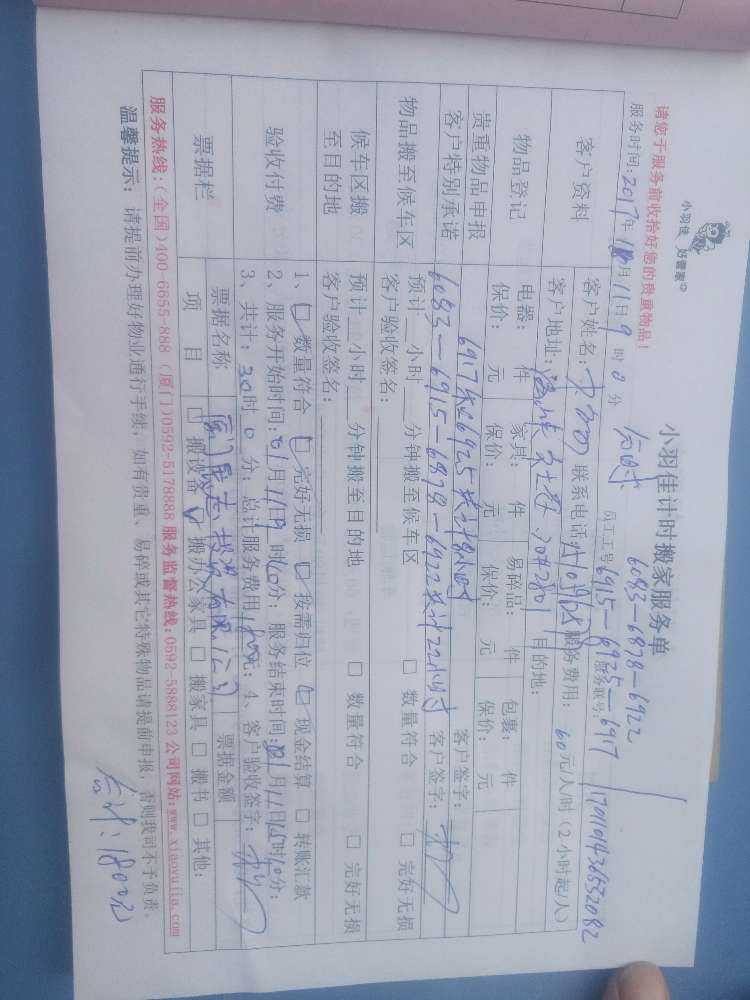 小羽佳 好管家
请您于服务前收拾好您的贵重物品!
小羽佳计时搬家服务单
6083-6878-6922
服务时间:2017年 月11日9时0分
员工工号:6915-6925-6917
服务账号:
客户资料
客户姓名:
联系电话:
服务费用: 60元/人/时(2小时起/人)
客户地址:
目的地:
物品登记
电器: 件 家具: 件 易碎品: 件 包裹: 件
保价: 元 保价: 元 保价: 元 保价: 元
贵重物品申报
客户特别承诺
6917和6925共计 小时
客户签字:
6083-6915-6878-6922共计22小时
客户签字:
物品搬至候车区
预计 小时 分钟搬至候车区 □ 数量符合 □ 完好无损
客户验收签名:
候车区搬至目的地
预计 小时 分钟搬至目的地 □ 数量符合 □ 完好无损
客户验收签名:
验收付费
1、□ 数量符合 □ 完好无损 □ 按需归位 □ 现金结算 □ 转账汇款
2、服务开始时间:01月11日9时10分;服务结束时间:01月11日15时10分;
3、共计:30时0分;总计服务费用1800元;4、客户验收签字:
票据栏
票据名称
票据金额
项目
□ 搬设备 □ 搬办公家具 □ 搬家具 □ 搬书 □ 其他:
服务热线:(全国)400-6655-888 (厦门)0592-5178888 服务监督热线:0592-5888123 公司网站:www.xiaoyujia.com
温馨提示: 请提前办理好物业通行手续,如有贵重、易碎或其它特殊物品请提前申报,否则我司不予负责。
合计:1800元